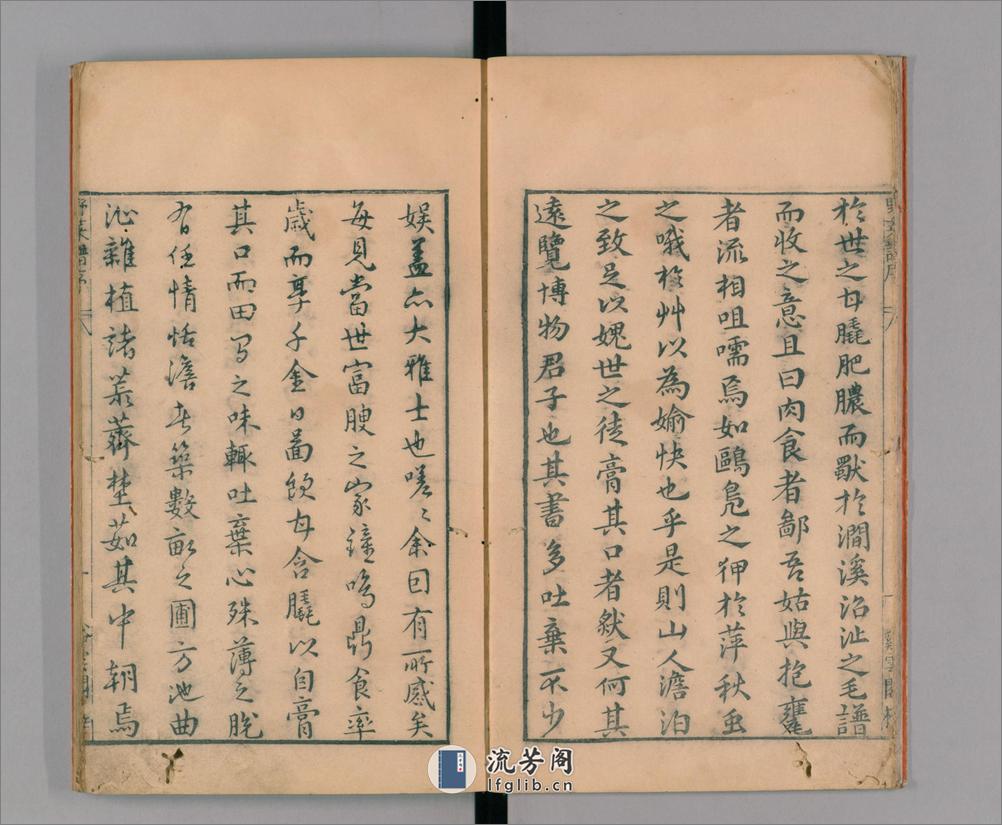 於世之甘膬肥膿而獸於澗溪沼沚之毛譜
而收之意且曰肉食者鄙吾姑與抱甕
者流相咀嚅焉如鷗鳧之狎於萍秋虫
之哦於艸以為媮快也乎是則山人澹泊
之致足以媿世之徒膏其口者然又何其
遠覽博物君子也其書多吐棄不少
娛蓋亦大雅士也嗟〻余因有所感矣
每見當世富腴之家鐘鳴鼎食率
歲而享千金日啚飲甘含膬以自膏
其口而田舄之味輒吐棄心殊薄之脫
有任情恬澹者築數畝之圃方池曲
沁雜植諸菘薺埜茹其中朝焉
野菜譜序
流芳阁
lfglib.cn